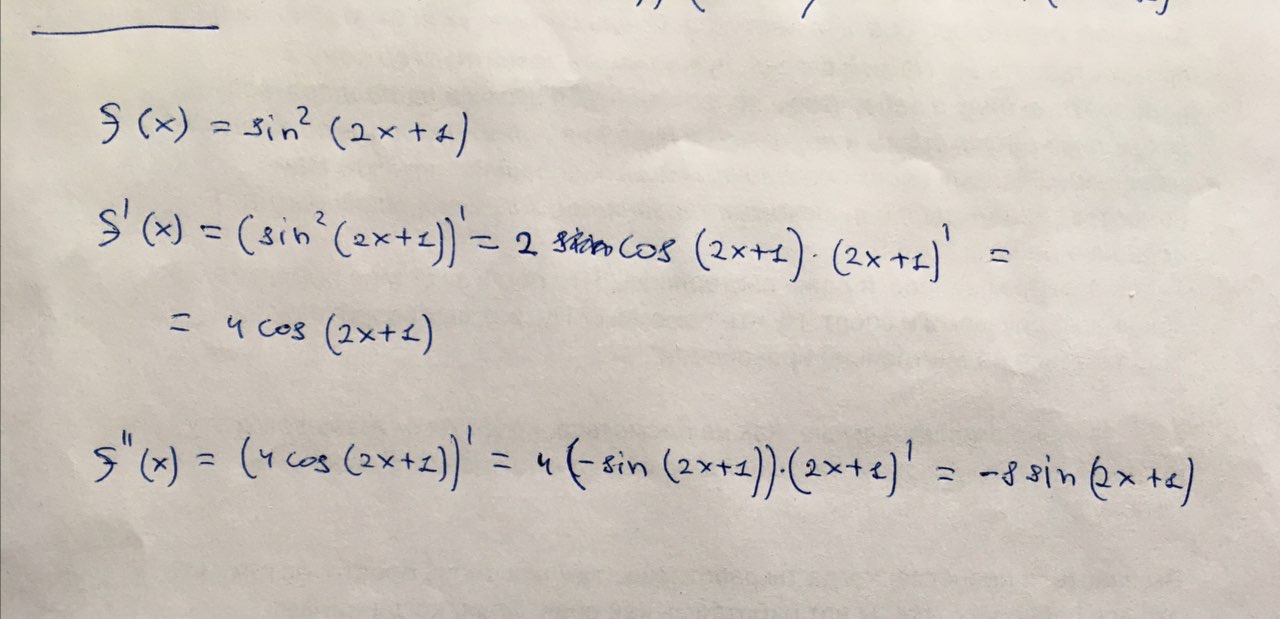 f(x) = sin² (2x+1)
f'(x) = (sin² (2x+1))' = 2 cos (2x+1) · (2x+1)' =
= 4 cos (2x+1)
f''(x) = (4 cos (2x+1))' = 4 (-sin (2x+1)) · (2x+1)' = -8 sin (2x+1)